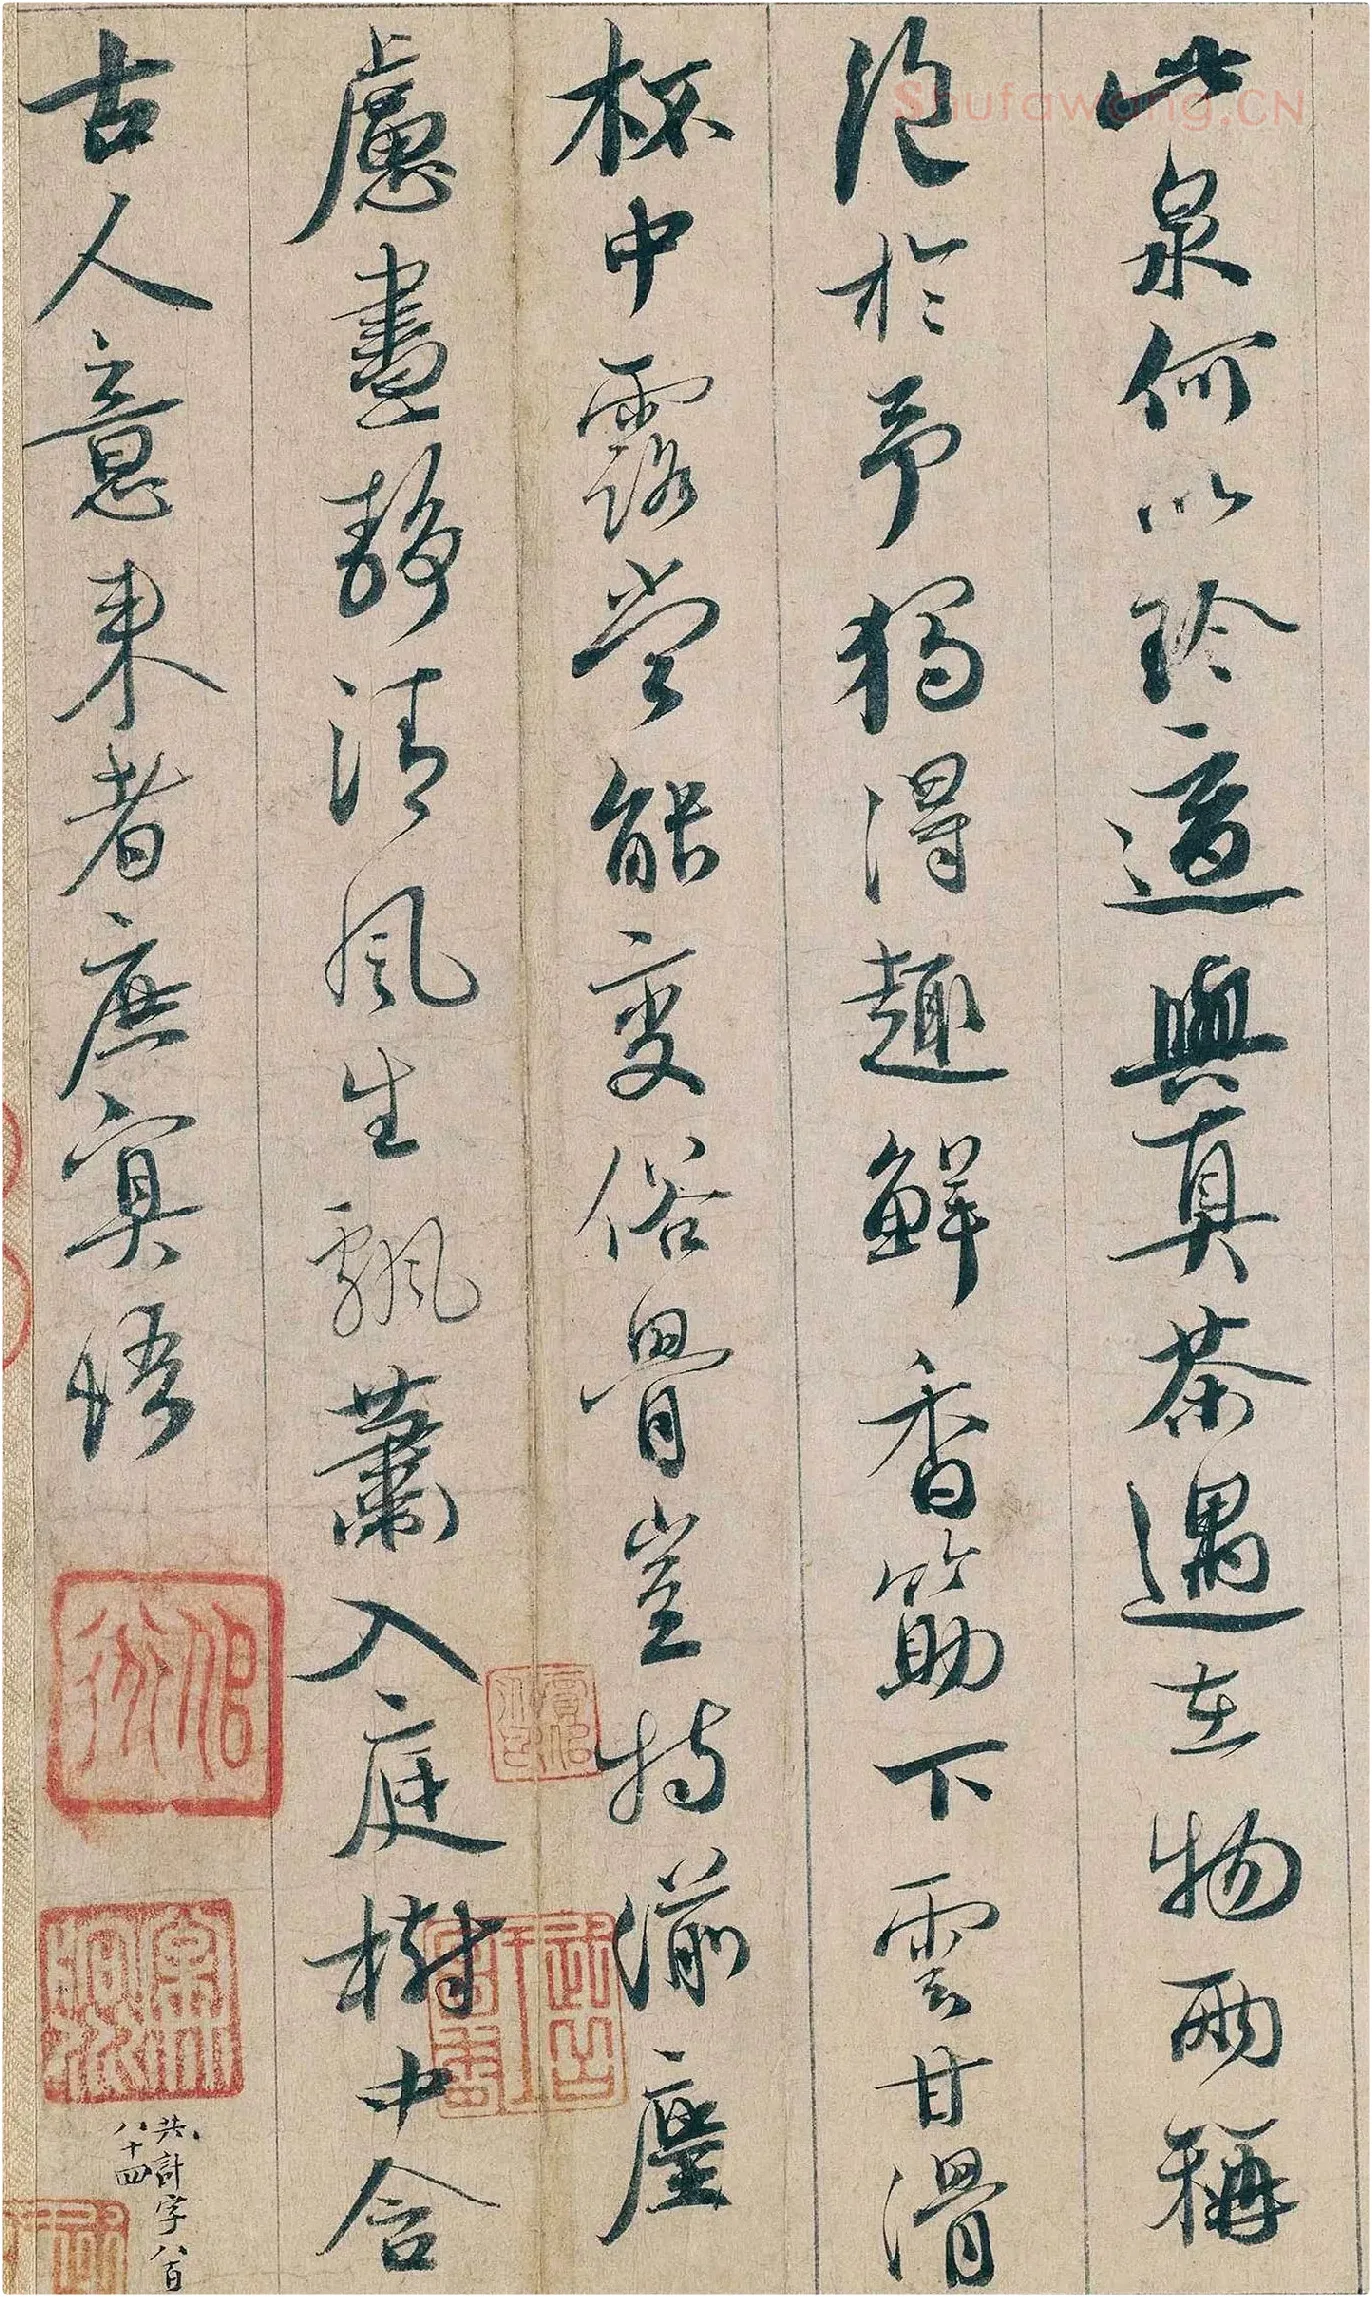 Shufawang.CN
此泉何以珍適與真茶遇在物兩稱
絕於予獨得趣鮮香筯下雲甘滑
杯中露當能變俗骨豈特湔塵
慮晝靜清風生飄蕭入庭樹中含
古人意來者庶冥悟
共計字八百
八十四